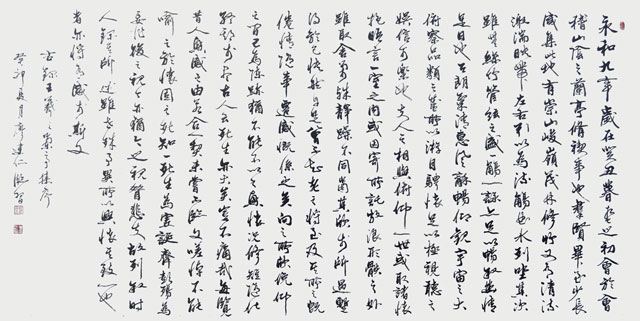 永和九年歲在癸丑暮春之初會於會
稽山陰之蘭亭脩稧事也羣賢畢至少長
咸集此地有崇山峻嶺茂林修竹又有清流
激湍映帶左右引以為流觴曲水列坐其次
雖無絲竹管絃之盛一觴一詠亦足以暢敘幽情
是日也天朗氣清惠風和暢仰觀宇宙之大
俯察品類之盛所以游目騁懷足以極視聽之
娛信可樂也夫人之相與俯仰一世或取諸懷
抱晤言一室之內或因寄所託放浪形骸之外
雖取舍萬殊靜躁不同當其欣於所遇暫
得於己怏然自足不知老之將至及其所之既
倦情隨事遷感慨係之矣向之所欣俛仰
之間已為陳跡猶不能不以之興懷況脩短隨化
終期於盡古人云死生亦大矣豈不痛哉每覽
昔人興感之由若合一契未嘗不臨文嗟悼不能
喻之於懷固知一死生為虛誕齊彭殤為
妄作後之視今亦猶今之視昔悲夫故列敘時
人錄其所述雖世殊事異所以興懷其致一也
者亦將有感於斯文
右錄王羲之蘭亭集序
癸卯夏月廖建仁